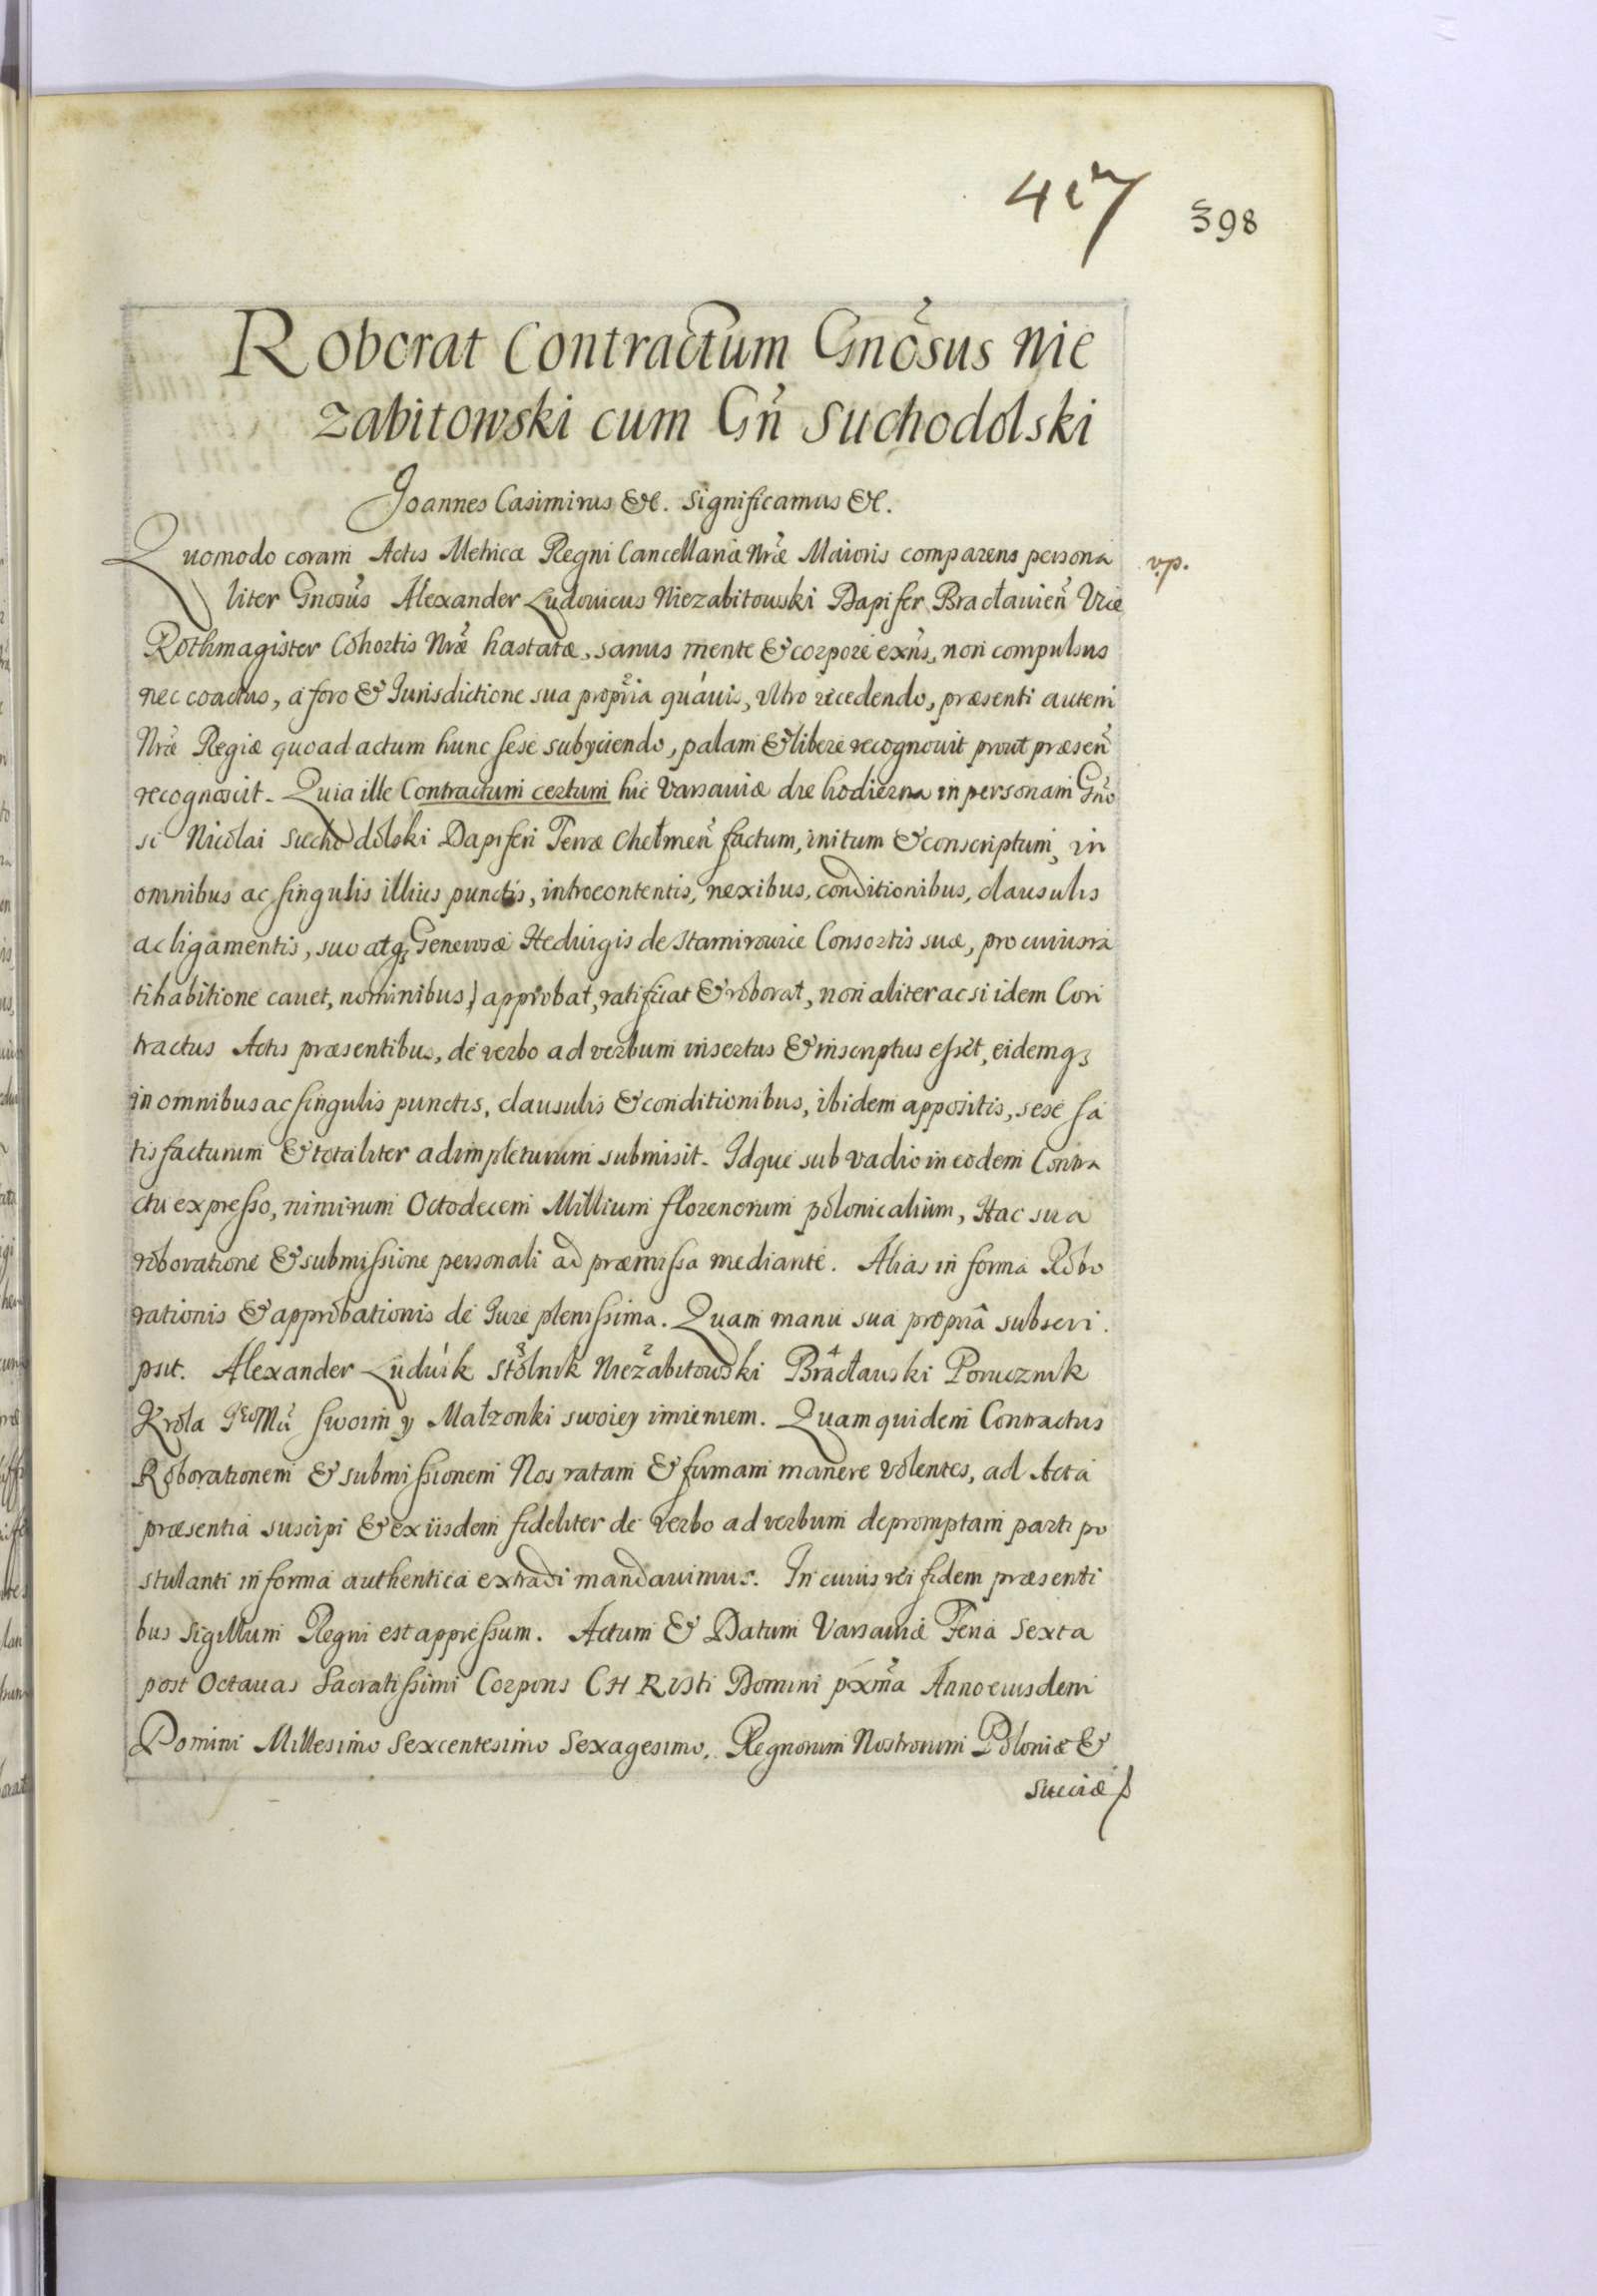 417
398
Roborat Contractum Gnõsus Nie
zabitowski cum Gñ Suchodolski
Joannes Casimirus &c. Significamus &c.
Quomodo coram Actis Metricæ Regni Cancellariæ Nræ Maioris comparens persona
v.p.
liter Gnosus Alexander Ludovicus Niezabitowski Dapifer Bracłavień Vice
Rothmagister Cohortis Nræ hastatæ, sanus mente & corpore exñs, non compulsus
nec coactus, a foro & Jurisdictione sua propria quavis, ultro recedendo, præsenti autem
Nræ Regiæ quoad actum hunc sese subyciendo, palam & libere recognovit prout præseñ
recognoscit. Quia ille Contractum certum hic Varsaviæ die hodierna in personam Gño
si Nicolai Suchodolski Dapiferi Terræ Chełmeñ factum, initum & conscriptum, in
omnibus ac singulis illius punctis, introcontentis, nexibus, conditionibus, clausulis
ac ligamentis, suo atq3 Generosæ Hedvigis de Stamirowice Consortis suæ, pro cuius ra
tihabitione cavet, nominibus, approbat, ratificat & roborat, non aliter ac si idem Con
tractus Actis præsentibus, de verbo ad verbum insertus & inscriptus esset, eidemq3
in omnibus ac singulis punctis, clausulis & conditionibus, ibidem appositis, sese sa
tisfacturum & totaliter adimpleturum submisit. Idque sub vadio in eodem Contra
ctu expresso, nimirum Octodecem Millium florenorum polonicalium, Hac sua
roboratione & submissione personali ad præmissa mediante. Alias in forma Robo
rationis & approbationis de Jure plenissima. Quam manu sua propriâ subscri
psit. Alexander Ludwik Stolnik Niezabitowski Bracławski Porucznik
Krola JeoMci swoim y Małzonki swoiey imieniem. Quamquidem Contractus
Roborationem & submissionem Nos ratam & firmam manere volentes, ad Acta
præsentia suscipi & ex iisdem fideliter de verbo ad verbum depromptam parti po
stulanti in forma authentica extradi mandavimus. In cuius rei fidem præsenti
bus Sigillum Regni est appressum. Actum & Datum Varsaviæ Feria Sexta
post Octavas Sacratissimi Corporis CHRisti Domini pxma Anno eiusdem
Domini Millesimo Sexcentesimo Sexagesimo, Regnorum Nostrorum Poloniæ &
Sueciæ